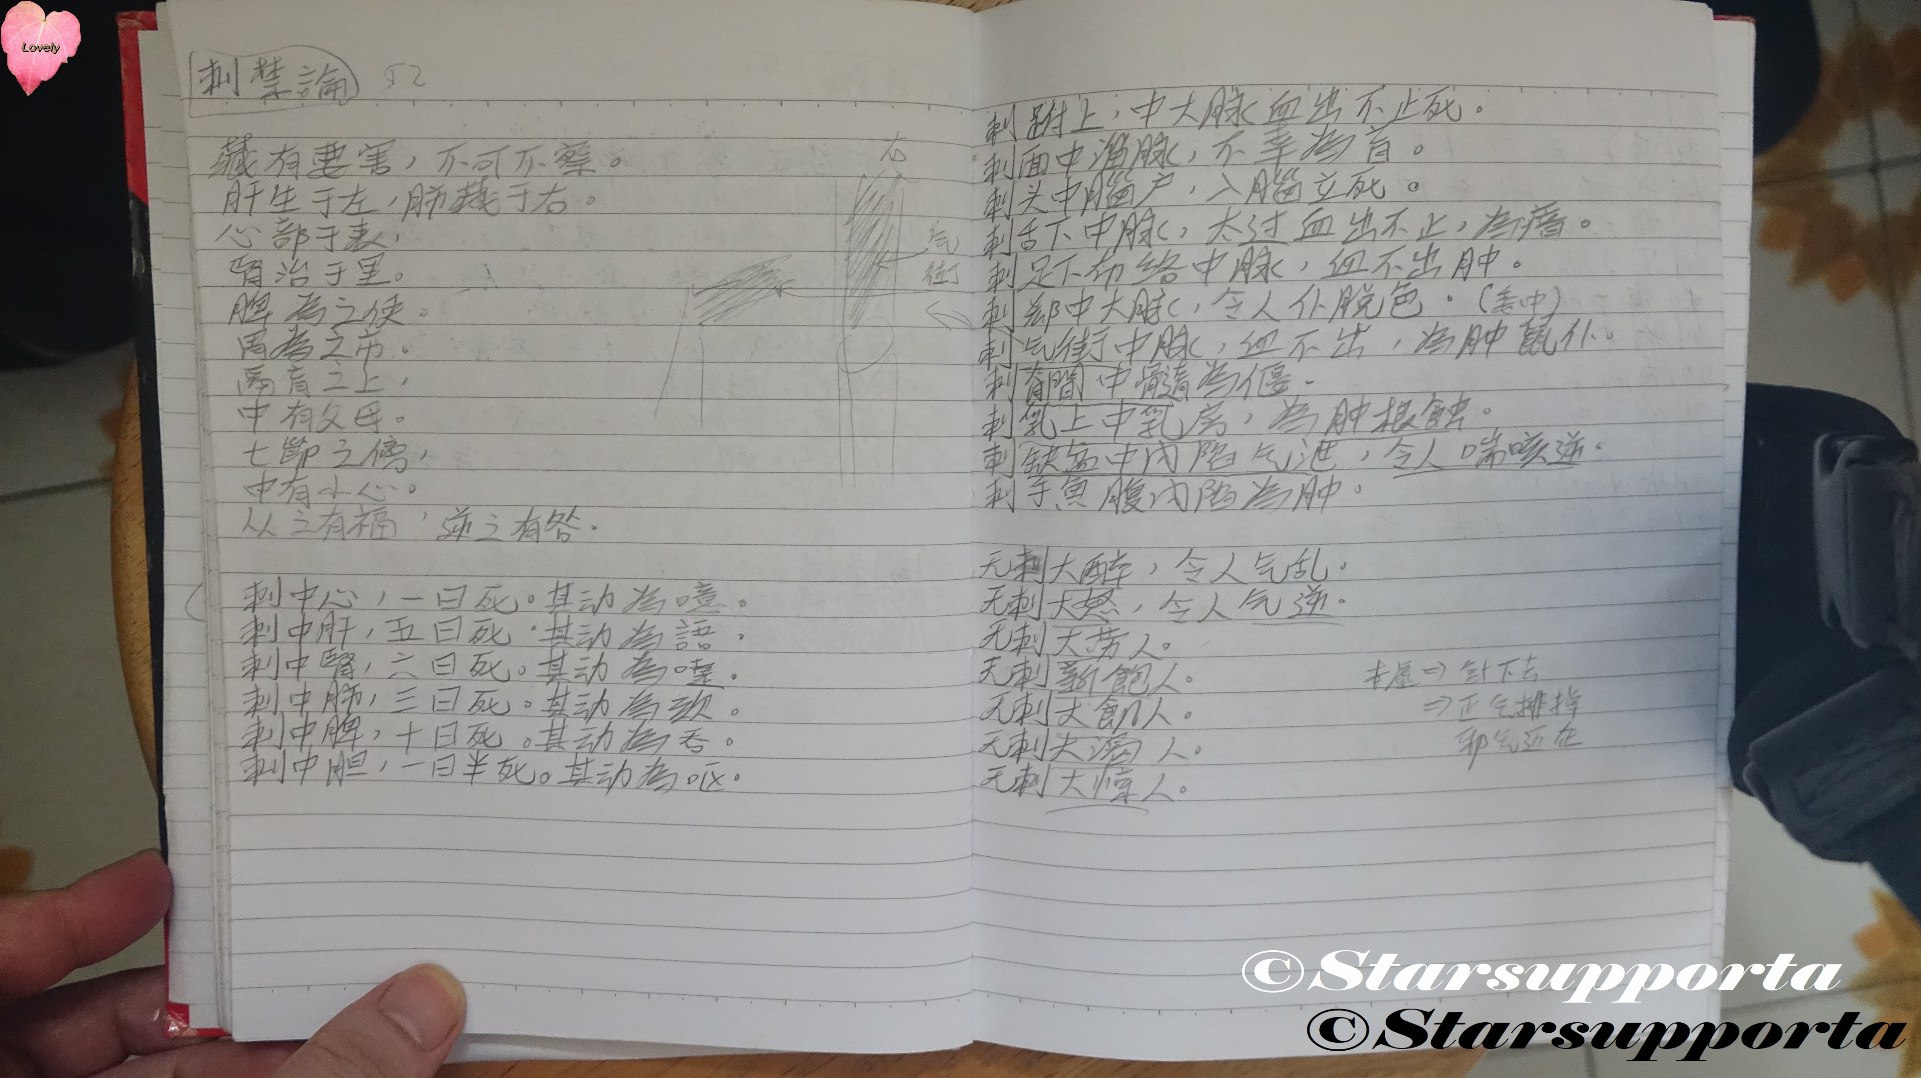 Lovely
刺禁論 52
藏有要害，不可不察。
肝生于左，肺藏于右。
心部于表，
腎治于里。
脾為之使。
胃為之市。
鬲肓之上，
中有父母。
七節之傍，
中有小心。
从之有福，逆之有咎.
刺中心，一日死。其动為噫。
刺中肝，五日死.其动為語.
刺中腎，六日死。其动為嚏.
刺中肺，三日死。其动為欬。
刺中脾，十日死。其动為吞。
刺中胆，一日半死。其动為呕.
右
气
街
刺跗上，中大脉血出不止死。
刺面中溜脉，不幸為盲。
刺头中腦户，入腦立死。
刺舌下中脉，太过血出不止，為瘖。
刺足下布络中脉，血不出肿。
刺郄中大脉，令人仆脱色.(委中)
刺气街中脉，血不出，為肿鼠仆.
刺脊間中髓為傴.
刺乳上中乳房，為肿根蝕.
刺缺盆中内陷气泄，令人喘咳逆.
刺手魚腹内陷為肿.
无刺大醉，令人气乱.
无刺大怒，令人气逆.
无刺大劳人.
无刺新飽人.
无刺大飢人.
无刺大渴人.
无刺大惊人.
太虛⇒針下去
⇒正气排掉
邪气还在
©Starsupporta
©Starsupporta